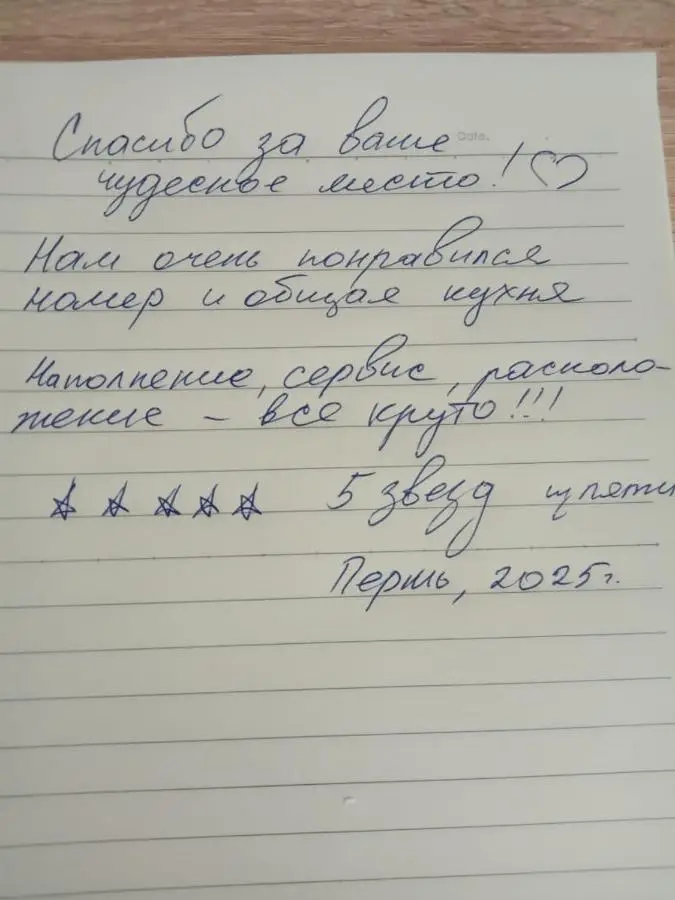 Date.
Спасибо за ваше
чудесное место! ♡
Нам очень понравился
номер и общая кухня
Наполнение, сервис, располо-
жение – все круто!!!
☆ ☆ ☆ ☆ ☆ 5 звезд
Пермь, 2025г.